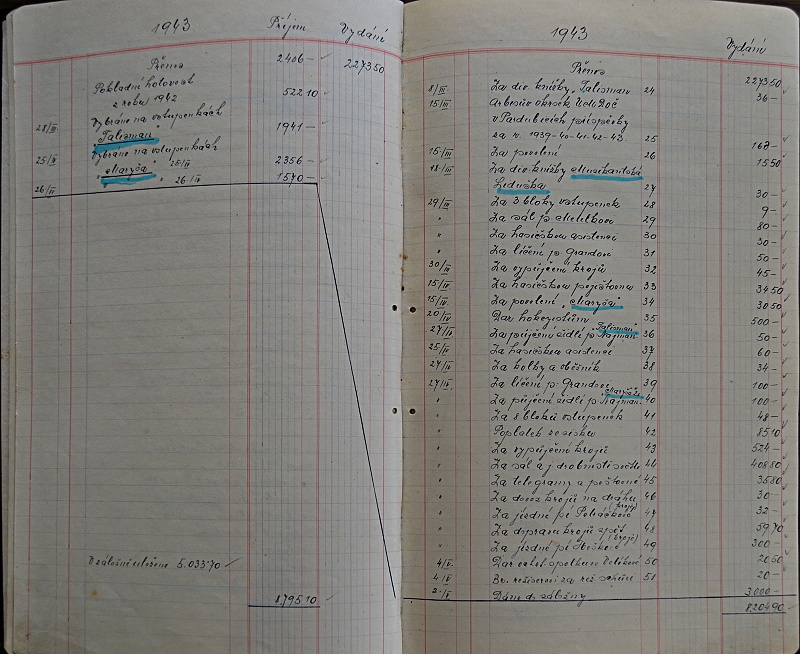 1943 Příjem Vydání
Přenos 2406 — 22 73 50
Pokladní hotovost
z roku 1942 522 10
Vybráno na vstupenkách
28/III "Talisman" 1941 —
Vybráno na vstupenkách
25/IV "Maryša" 25/IV 2356 —
26/IV " " 26/IV 1570 —
V záložně uloženo 5.033 70
8.795 10
1943 Vydání
Přenos 22 73 50
8/III Za div. knížky "Talisman" 24 36 —
15/III okrsek
v Pardubicích příspěvky
za r. 1939-40-41-42-43. 25 168 —
15/III Za povolení 26 15 50
18/III Za div. knížky Muzikantská
Liduška 27 30 —
29/III Za 3 bloky vstupenek 28 9 —
" Za sál p. 29 80 —
" Za hasičskou asistenci 30 30 —
" Za líčení p. Grandovi 31 50 —
30/III Za vypůjčení krojů 32 45 —
15/IV Za hasičskou 33 34 50
15/IV Za povolení "Maryša" 34 30 50
20/IV Dar hokejistům 35 500 —
Talisman
27/IV Za půjčení židlí p. Hajman 36 50 —
25/IV Za hasičskou asistenci 37 60 —
27/IV Za kolky a oběžník 38 34 —
27/IV Za líčení p. Grandovi 39 100 —
" Za půjčení židlí p. Hajman. 40 100 —
" Za 8 bloků vstupenek 41 48 —
" Poplatek ze zisku 42 85 10
" Za vypůjčení krojů 43 524 —
" Za sál a j. drobnosti 44 408 80
" Za telegramy a poštovné 45 35 80
" Za dovoz krojů na dráhu 46 30 —
" Za jízdné pí 47 32 —
" Za dopravu krojů zpět 48 59 70
" Za jízdné pí 49 300 —
4/V. Dar 50 20 50
4/V Br. režisérovi za rež. 51 20 —
Dáno do záložny 3.000 —
8.204 90